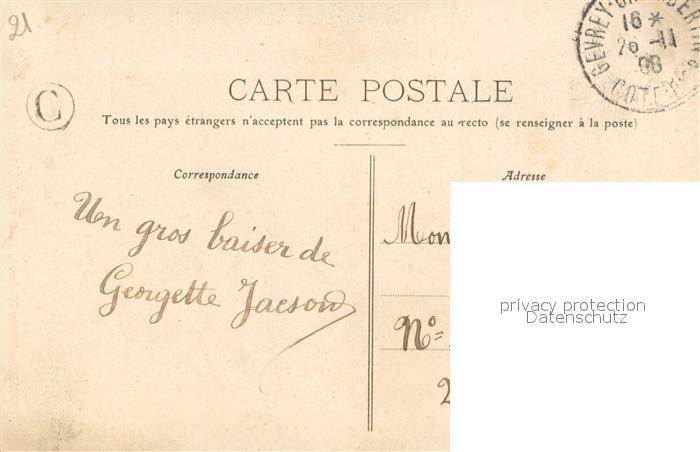 21
GEVREY-CHAMBERTIN
16 *
26 -11
08
COTE D'OR
C
CARTE POSTALE
Tous les pays étrangers n'acceptent pas la correspondance au recto (se renseigner à la poste)
Correspondance
Adresse
Un gros baiser de
Georgette Jacson
Mon
N°=
2
privacy protection
Datenschutz